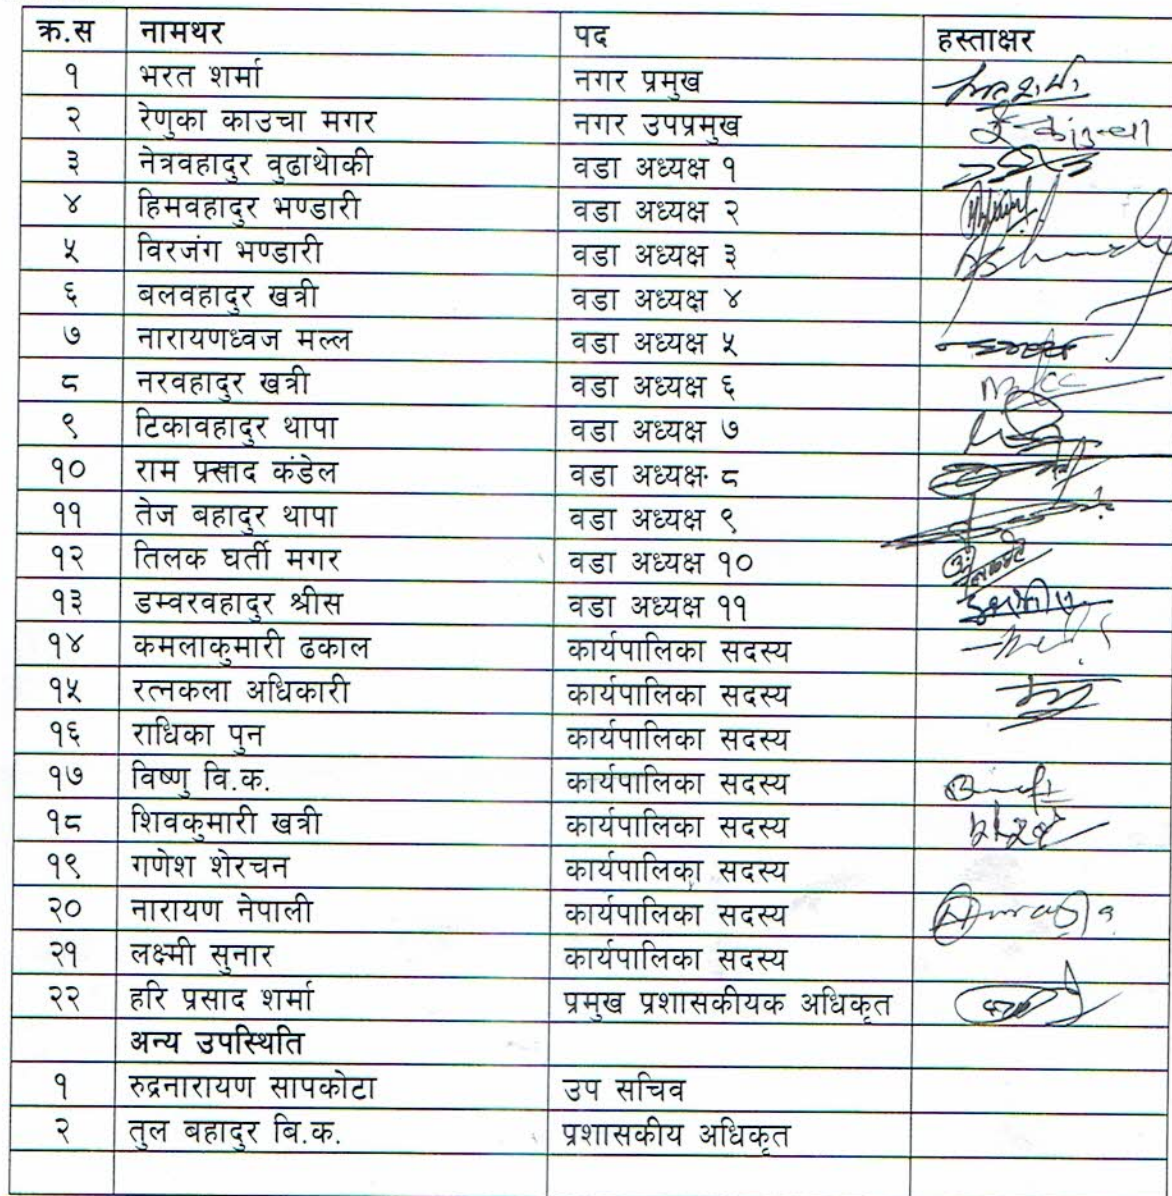 क्र.स नामथर पद हस्ताक्षर
१ भरत शर्मा नगर प्रमुख
२ रेणुका काउचा मगर नगर उपप्रमुख
३ नेत्रवहादुर वुढाथोकी वडा अध्यक्ष १
४ हिमवहादुर भण्डारी वडा अध्यक्ष २
५ विरजंग भण्डारी वडा अध्यक्ष ३
६ बलवहादुर खत्री वडा अध्यक्ष ४
७ नारायणध्वज मल्ल वडा अध्यक्ष ५
८ नरवहादुर खत्री वडा अध्यक्ष ६
९ टिकावहादुर थापा वडा अध्यक्ष ७
१० राम प्रसाद कंडेल वडा अध्यक्ष ८
११ तेज बहादुर थापा वडा अध्यक्ष ९
१२ तिलक घर्ती मगर वडा अध्यक्ष १०
१३ डम्वरवहादुर श्रीस वडा अध्यक्ष ११
१४ कमलाकुमारी ढकाल कार्यपालिका सदस्य
१५ रत्नकला अधिकारी कार्यपालिका सदस्य
१६ राधिका पुन कार्यपालिका सदस्य
१७ विष्णु वि.क. कार्यपालिका सदस्य
१८ शिवकुमारी खत्री कार्यपालिका सदस्य
१९ गणेश शेरचन कार्यपालिका सदस्य
२० नारायण नेपाली कार्यपालिका सदस्य
२१ लक्ष्मी सुनार कार्यपालिका सदस्य
२२ हरि प्रसाद शर्मा प्रमुख प्रशासकीयक अधिकृत
अन्य उपस्थिति
१ रुद्रनारायण सापकोटा उप सचिव
२ तुल बहादुर बि.क. प्रशासकीय अधिकृत